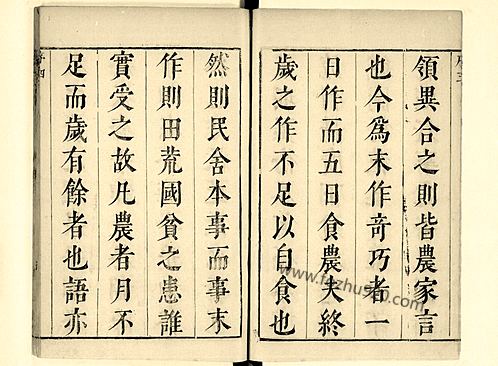 領異合之則皆農家言
也今爲末作竒巧者一
日作而五日食農夫終
歲之作不足以自食也
然則民舍本事而事末
作則田荒國貧之患誰
實受之故凡農者月不
足而歲有餘者也語亦